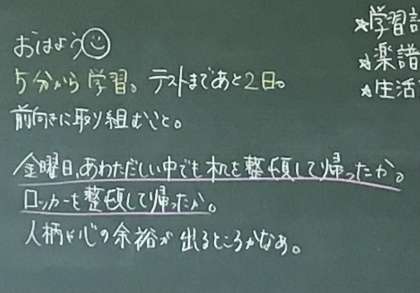 おはよう☺
5分から学習。テストまであと2日。
前向きに取り組むこと。
金曜日、あわただしい中でも机を整頓して帰ったか。
ロッカーを整頓して帰ったか。
人柄や心の余裕が出るところかなぁ。
★学習計
★楽譜
★生活